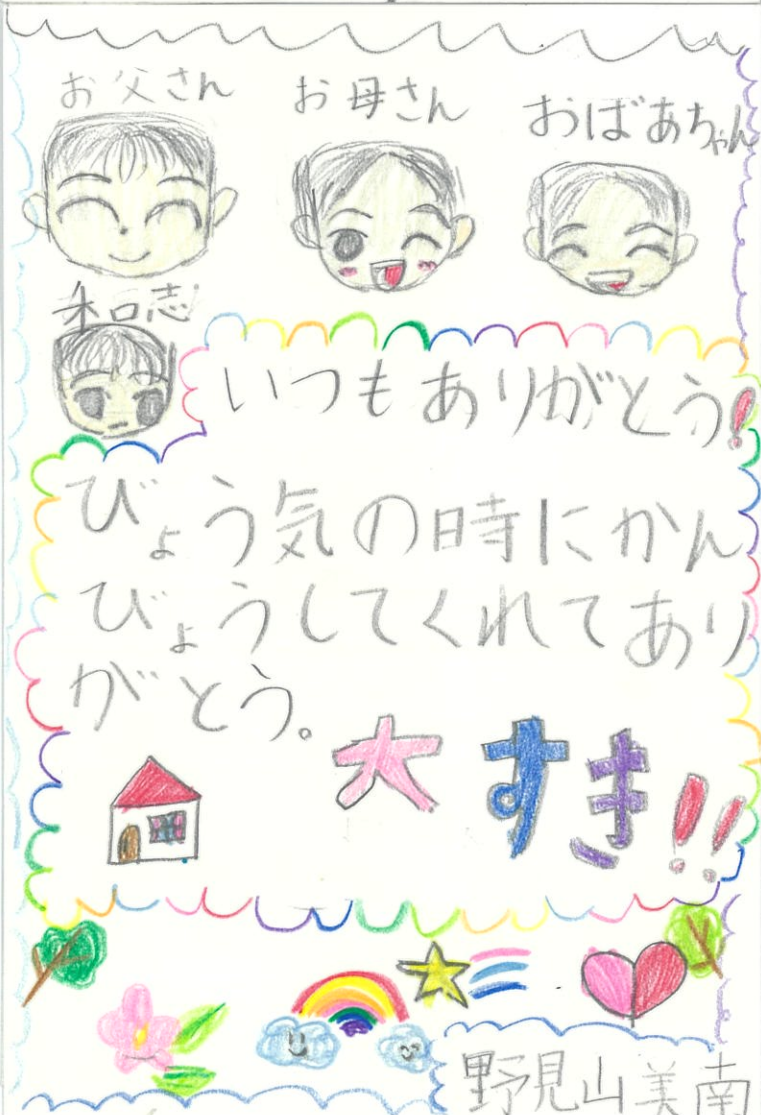 お父さん
お母さん
おばあちゃん
和志
いつもありがとう!
びょう気の時にかん
びょうしてくれてあり
がとう。
大すき!!
野見山美南